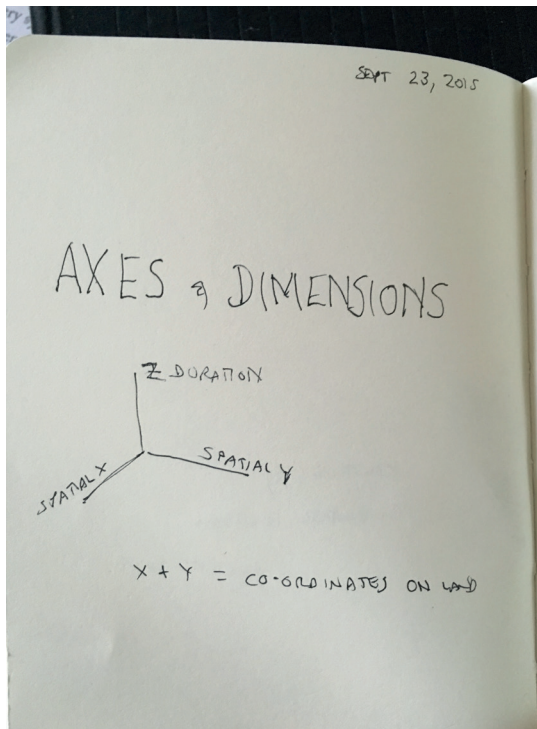 ry
er
SEPT 23, 2015
AXES & DIMENSIONS
Z DURATION
SPATIAL X
SPATIAL Y
X + Y = CO-ORDINATES ON LAND